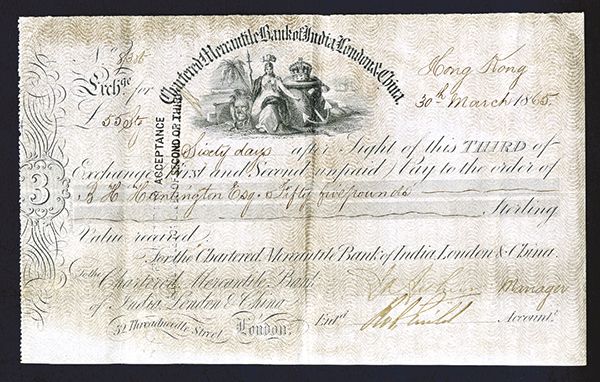 Chartered Mercantile Bank of India, London & China.
Exchge for
£ 55 Stg
Hong Kong
30th March 1865.
ACCEPTANCE
OF SECOND OR THIRD
Sixty days after Sight of this THIRD of
Exchange (First and Second unpaid) Pay to the order of
Huntington Esq. Fifty five pounds
Sterling
3
Value received
For the Chartered Mercantile Bank of India London & China.
To the
Chartered Mercantile Bank
of India London & China
52 Threadneedle Street London.
Manager
Entd
Accountt